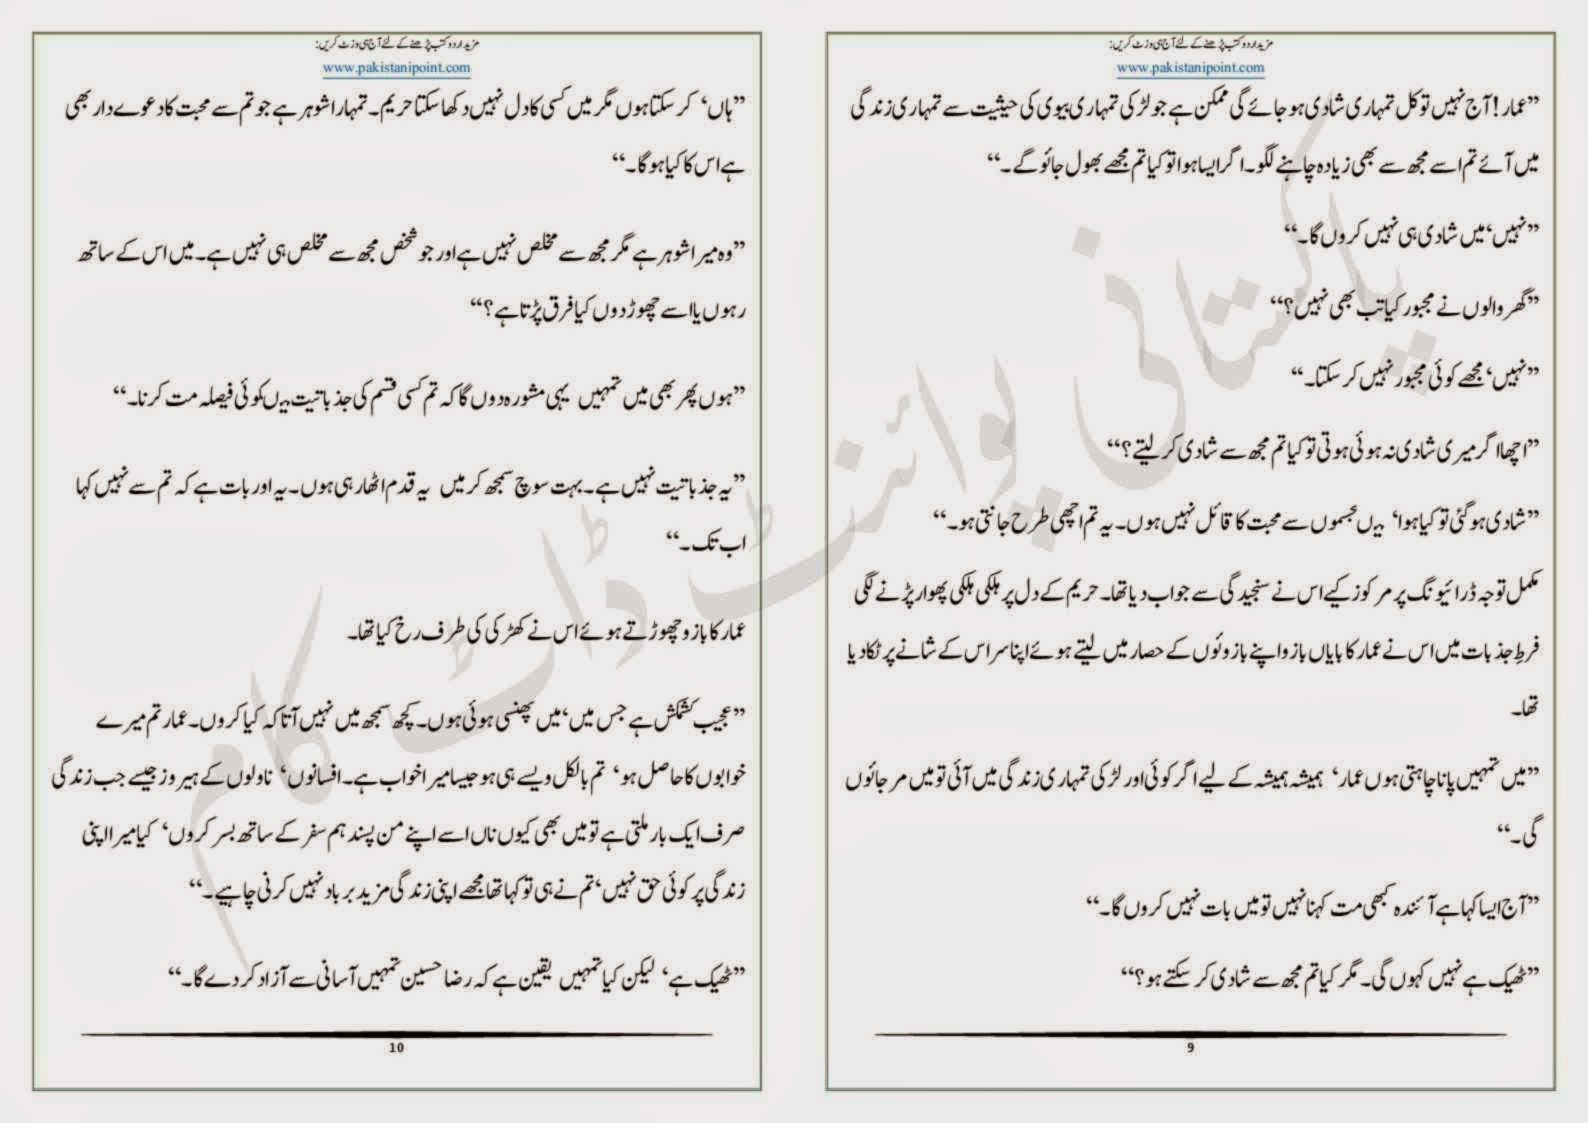 مزید اردو کتب پڑھنے کے لئے آج ہی وزٹ کریں:
www.pakistanipoint.com
”عمار! آج نہیں تو کل تمہاری شادی ہو جائے گی ممکن ہے جو لڑکی تمہاری بیوی کی حیثیت سے تمہاری زندگی
میں آئے تم اسے مجھ سے بھی زیادہ چاہنے لگو۔ اگر ایسا ہوا تو کیا تم مجھے بھول جائو گے۔“
”نہیں‘ میں شادی ہی نہیں کروں گا۔“
”گھر والوں نے مجبور کیا تب بھی نہیں؟“
”نہیں‘ مجھے کوئی مجبور نہیں کر سکتا۔“
”اچھا اگر میری شادی نہ ہوئی ہوتی تو کیا تم مجھ سے شادی کر لیتے؟“
”شادی ہو گئی تو کیا ہوا‘ میں جسموں سے محبت کا قائل نہیں ہوں۔ یہ تم اچھی طرح جانتی ہو۔“
مکمل توجہ ڈرائیونگ پر مرکوز کیے اس نے سنجیدگی سے جواب دیا تھا۔ حریم کے دل پر ہلکی ہلکی پھوار پڑنے لگی
فرطِ جذبات میں اس نے عمار کا بایاں بازو اپنے بازوئوں کے حصار میں لیتے ہوئے اپنا سر اس کے شانے پر ٹکا دیا
تھا۔
”میں تمہیں پانا چاہتی ہوں عمار‘ ہمیشہ ہمیشہ کے لیے اگر کوئی اور لڑکی تمہاری زندگی میں آئی تو میں مر جائوں
گی۔“
”آج ایسا کہا ہے آئندہ کبھی مت کہنا نہیں تو میں بات نہیں کروں گا۔“
”ٹھیک ہے نہیں کہوں گی۔ مگر کیا تم مجھ سے شادی کر سکتے ہو؟“
9
مزید اردو کتب پڑھنے کے لئے آج ہی وزٹ کریں:
www.pakistanipoint.com
”ہاں‘ کر سکتا ہوں مگر میں کسی کا دل نہیں دکھا سکتا حریم۔ تمہارا شوہر ہے جو تم سے محبت کا دعوے دار بھی
ہے اس کا کیا ہو گا۔“
”وہ میرا شوہر ہے مگر مجھ سے مخلص نہیں ہے اور جو شخص مجھ سے مخلص ہی نہیں ہے۔ میں اس کے ساتھ
رہوں یا اسے چھوڑ دوں کیا فرق پڑتا ہے؟“
”ہوں پھر بھی میں تمہیں یہی مشورہ دوں گا کہ تم کسی قسم کی جذباتیت میں کوئی فیصلہ مت کرنا۔“
”یہ جذباتیت نہیں ہے۔ بہت سوچ سمجھ کر میں یہ قدم اٹھا رہی ہوں۔ یہ اور بات ہے کہ تم سے نہیں کہا
اب تک۔“
عمار کا بازو چھوڑتے ہوئے اس نے کھڑکی کی طرف رخ کیا تھا۔
”عجیب کشمکش ہے جس میں‘ میں پھنسی ہوئی ہوں۔ کچھ سمجھ میں نہیں آتا کہ کیا کروں۔ عمار تم میرے
خوابوں کا حاصل ہو‘ تم بالکل ویسے ہی ہو جیسا میرا خواب ہے۔ افسانوں‘ ناولوں کے ہیروز جیسے جب زندگی
صرف ایک بار ملتی ہے تو میں بھی کیوں ناں اسے اپنے من پسند ہم سفر کے ساتھ بسر کروں‘ کیا میرا اپنی
زندگی پر کوئی حق نہیں‘ تم نے ہی تو کہا تھا مجھے اپنی زندگی مزید برباد نہیں کرنی چاہیے۔“
”ٹھیک ہے‘ لیکن کیا تمہیں یقین ہے کہ رضا حسین تمہیں آسانی سے آزاد کر دے گا۔“
10
پاکستانی پوائنٹ ڈاٹ کام